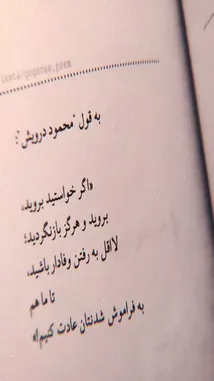 به قول "محمود درویش":
«اگر خواستید بروید،
بروید و هرگز بازنگردید؛
لااقل به رفتن وفادار باشید،
تا ما هم
به فراموش شدنتان عادت کنیم!»